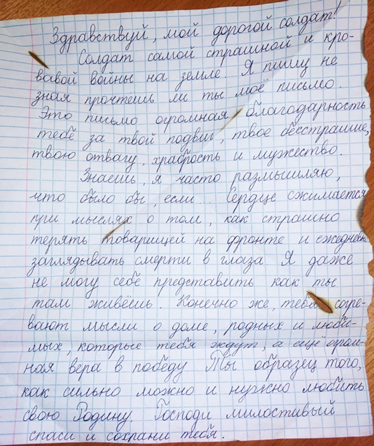 Здравствуй, мой дорогой солдат!
Солдат самой страшной и кро-
вавой войны на земле. Я пишу не
зная прочтешь ли ты моё письмо.
Это письмо огромная благодарность
тебе за твой подвиг, твое бесстрашие,
твою отвагу, храбрость и мужество.
Знаешь, я часто размышляю,
что было бы, если... Сердце сжимается
при мыслях о том, как страшно
терять товарищей на фронте и ежедневно
заглядывать смерти в глаза. Я даже
не могу себе представить как ты
там живёшь. Конечно же, тебя согре-
вают мысли о доме, родных и люби-
мых, которые тебя ждут, а еще огром-
ная вера в победу. Ты образец того,
как сильно можно и нужно любить
свою Родину. Господи милостивый
спаси и сохрани тебя.